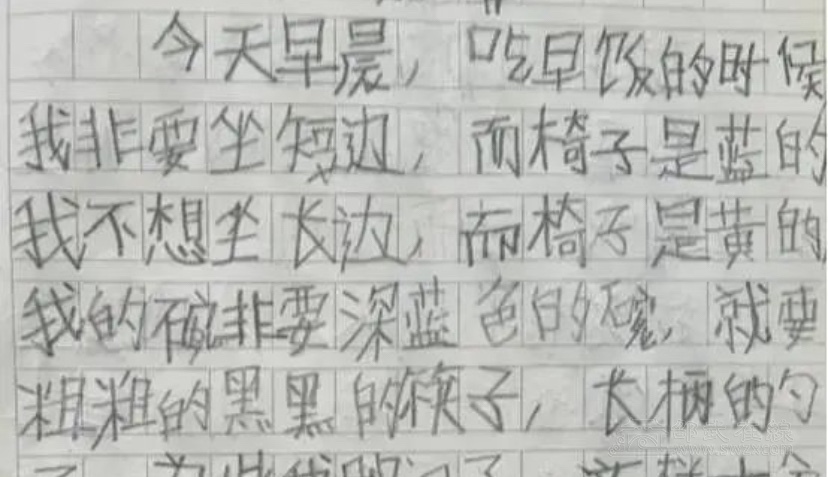 今天早晨，吃早饭的时候
我非要坐短边，而椅子是蓝的
我不想坐长边，而椅子是黄的，
我的碗非要深蓝色的碗，就要
粗粗的黑黑的筷子，长柄的勺